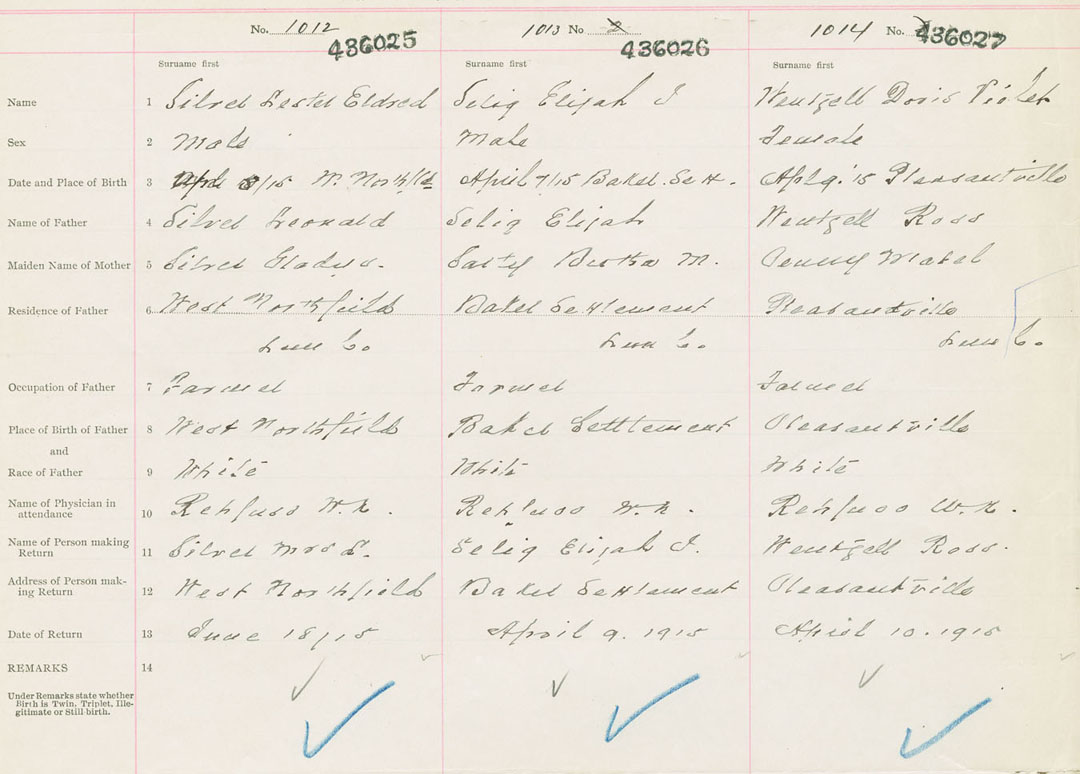 No. 1012 1013 No 2 1014 No.
436025 436026 436027
Surname first Surname first Surname first
Name 1 Silver Lester Eldred Selig Elijah J Wentzell Doris Violet
Sex 2 Male Male Female
Date and Place of Birth 3 April 8/15 W. Northfld April 7/15 Baker Sett. Apl 9.'15 Pleasantville
Name of Father 4 Silver Leonard Selig Elijah Wentzell Ross
Maiden Name of Mother 5 Silver Gladys. Bertha M. Mabel
Residence of Father 6 West Northfield Baker Settlement Pleasantville
Lun Co. Lun Co. Lun Co.
Occupation of Father 7 Farmer Farmer Farmer
Place of Birth of Father 8 West Northfield Baker Settlement Pleasantville
and
Race of Father 9 White White White
Name of Physician in
attendance 10 Rehfuss W. N. Rehfuss W. N. Rehfuss W. N.
Name of Person making
Return 11 Silver Mrs L. Selig Elijah J. Wentzell Ross.
Address of Person mak-
ing Return 12 West Northfield Baker Settlement Pleasantville
Date of Return 13 June 18/15 April 9. 1915 April 10. 1915
REMARKS 14
Under Remarks state whether
Birth is Twin, Triplet, Ille-
gitimate or Still-birth.